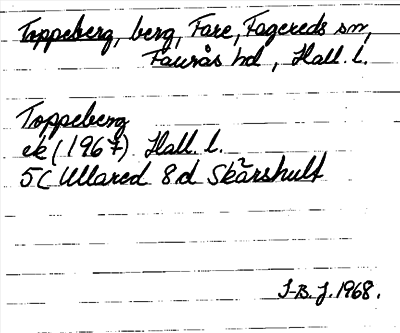 Toppeberg, berg, Fare, Fagereds sn,
Faurås hd, Hall. l.
Toppeberg
ek (1967) Hall. l.
5C Ullared 8d Skärshult
I-B. J. 1968.